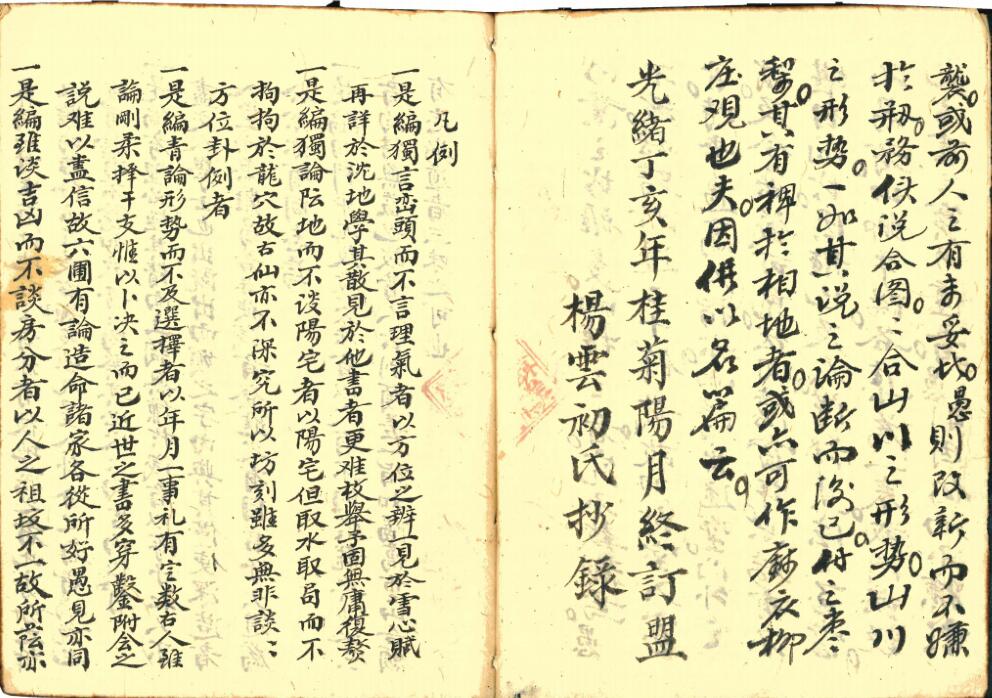 襲或前人之有未妥也愚則改新而不嫌
於剏務使說合图〻合山川之形势山川
之形势一如其說之論断而後已付之枣
梨其有裨於相地者或亦可作麻衣柳
庄观也夫因併以名篇云
光緒丁亥年桂菊陽月終訂盟
楊雲初氏抄錄
凡例
一是編獨言巒頭而不言理氣者以方位之辨一見於雪心賦
再詳於沈地學其散見於他書者更难枚舉予固無庸復贅
一是編獨論阮地而不談陽宅者以陽宅但取水取局而不
拘拘於龍穴故古仙亦不深究所以坊刻雖多無非談〻
方位卦例者
一是編青論形势而不及選擇者以年月一事礼有定数古人雖
論剛柔择干支惟以卜决之而已近世之書多穿鑿附会之
説难以盡信故六圃有論造命諸家各從所好愚見亦同
一是編雖谈吉凶而不談房分者以人之祖坟不一故所荫亦